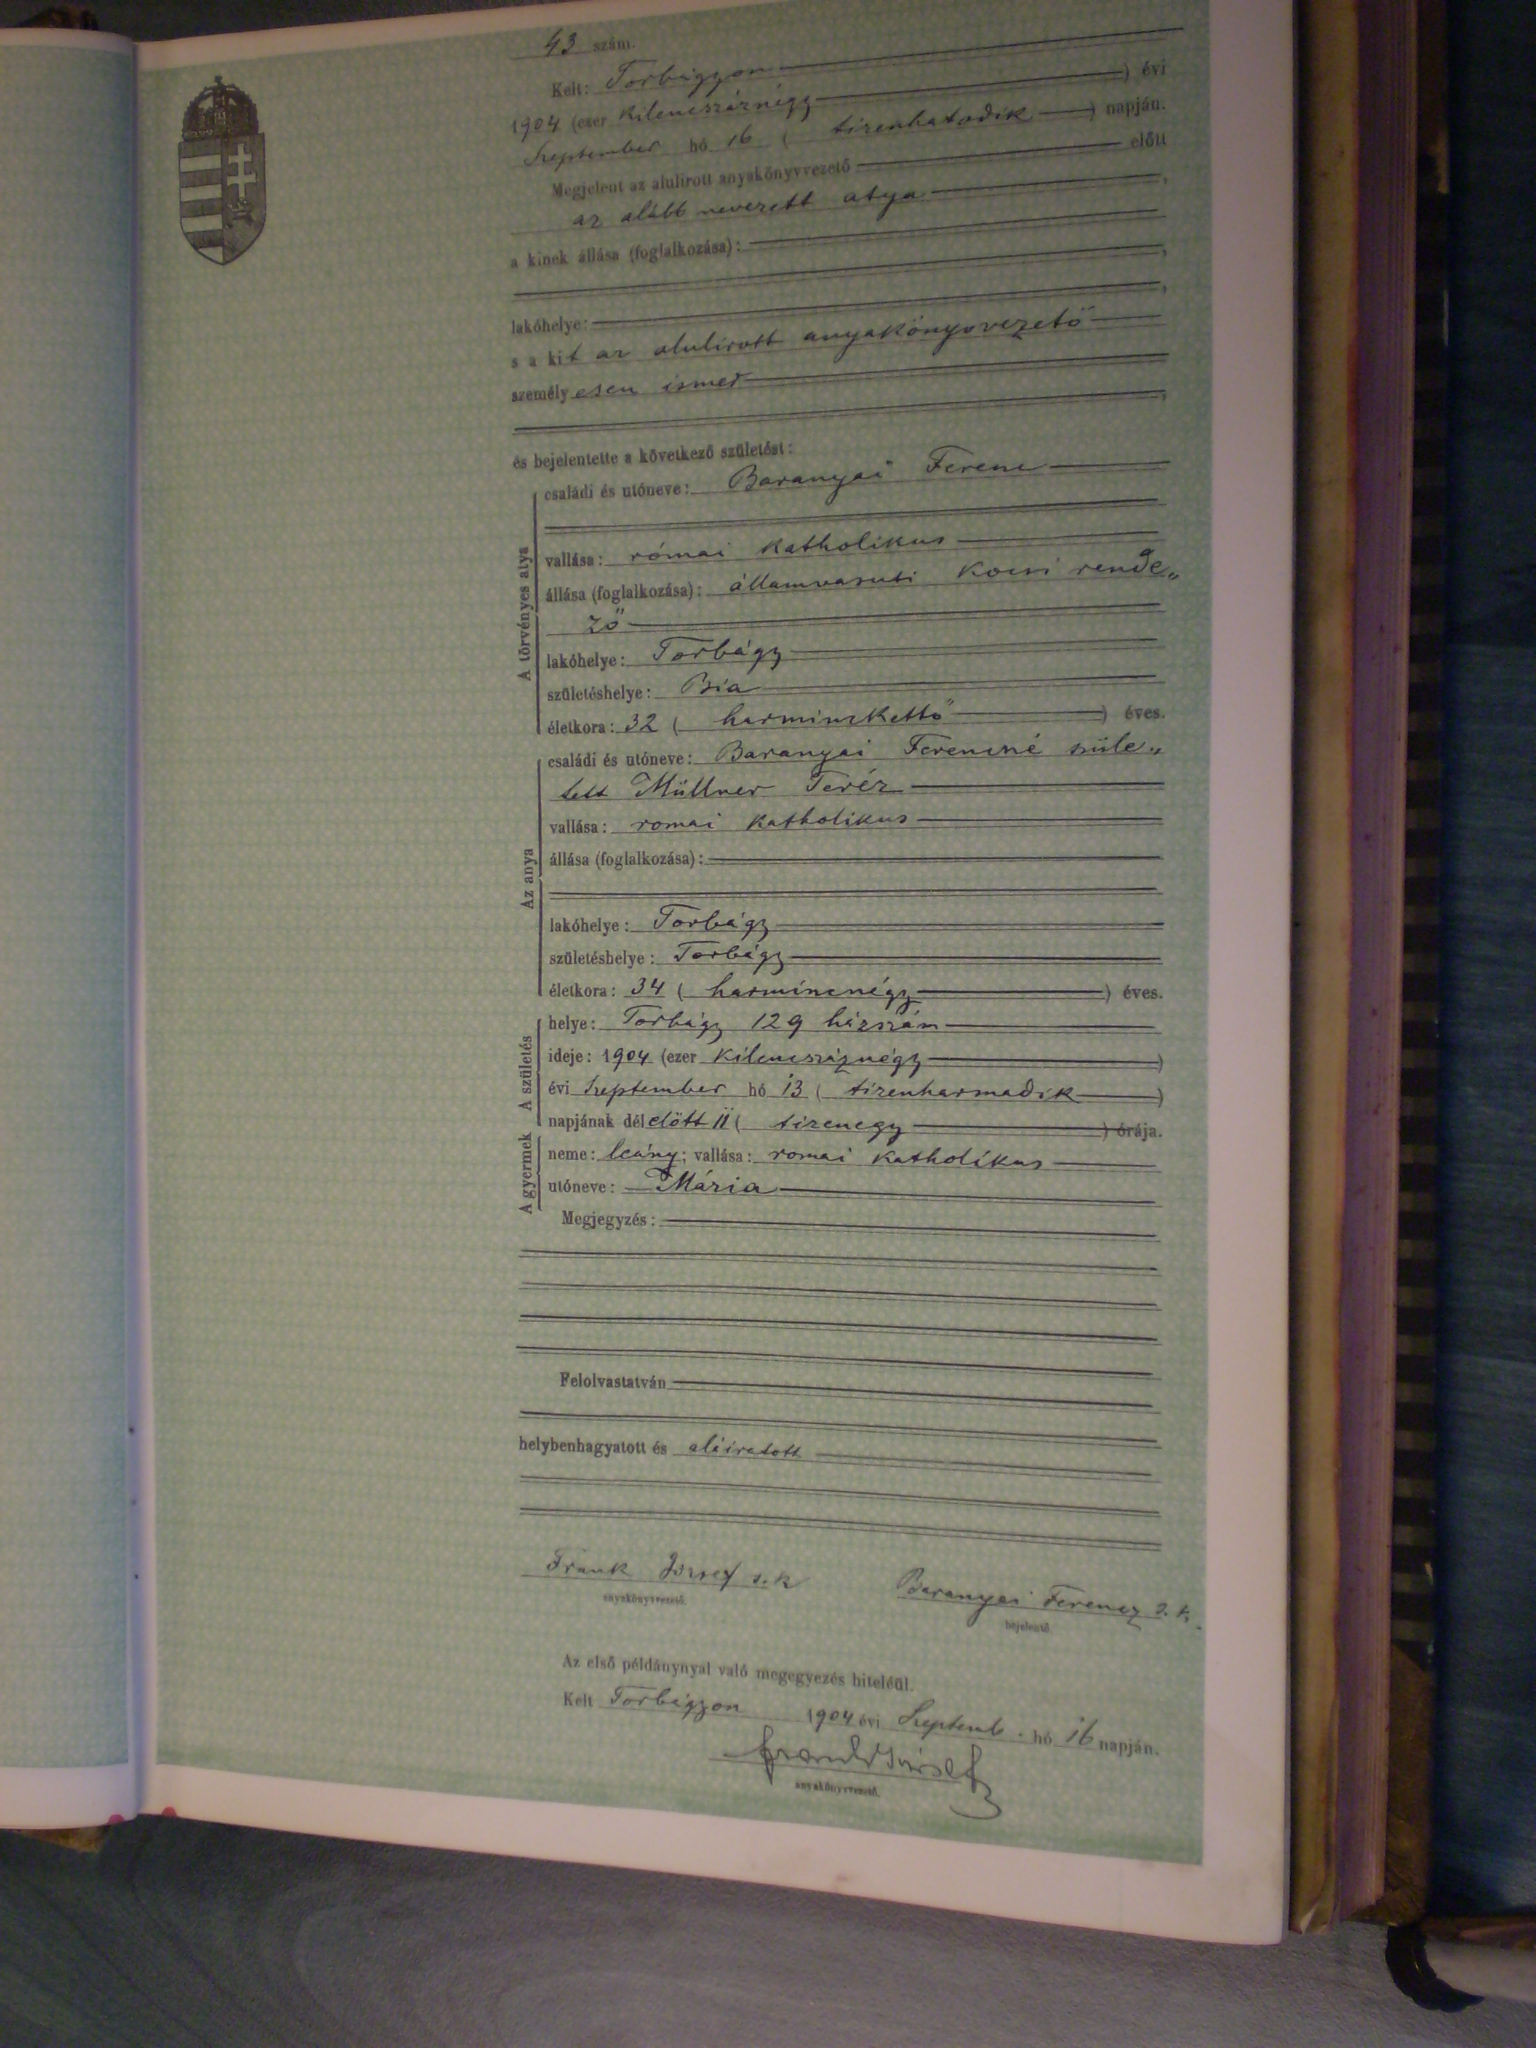 43 szám.
Kelt: Torbágyon
1904 (ezer kilencszáznégy ) évi
Szeptember hó 16 ( tizenhatodik ) napján.
Megjelent az alulirott anyakönyvvezető előtt
az alább nevezett atya ,
a kinek állása (foglalkozása):
,
lakóhelye: ,
s a kit az alulirott anyakönyvvezető
személyesen ismer
,
és bejelentette a következő születést:
A törvényes atya
családi és utóneve: Baranyai Ferenc
vallása: római katholikus
állása (foglalkozása): államvasuti kocsi rende„
ző
lakóhelye: Torbágy
születéshelye: Bia
életkora: 32 ( harminckettő ) éves.
Az anya
családi és utóneve: Baranyai Ferencné szüle„
tett Müllner Teréz
vallása: romai katholikus
állása (foglalkozása):
lakóhelye: Torbágy
születéshelye: Torbágy
életkora: 34 ( harmincnégy ) éves.
A születés
helye: Torbágy 129 házszám
ideje: 1904 (ezer kilencszáznégy )
évi Szeptember hó 13 ( tizenharmadik )
napjának délelőtt 11 ( tizenegy ) órája.
A gyermek
neme: leány; vallása: romai katholikus
utóneve: Mária
Megjegyzés:
Felolvastatván
helybenhagyatott és aláiratott
Frank József s.k Baranyai Ferencz s. k.
anyakönyvvezető. bejelentő.
Az első példánynyal való megegyezés hiteléül.
Kelt Torbágyon 1904 évi Szeptemb. hó 16 napján.
Frank József
anyakönyvvezető.